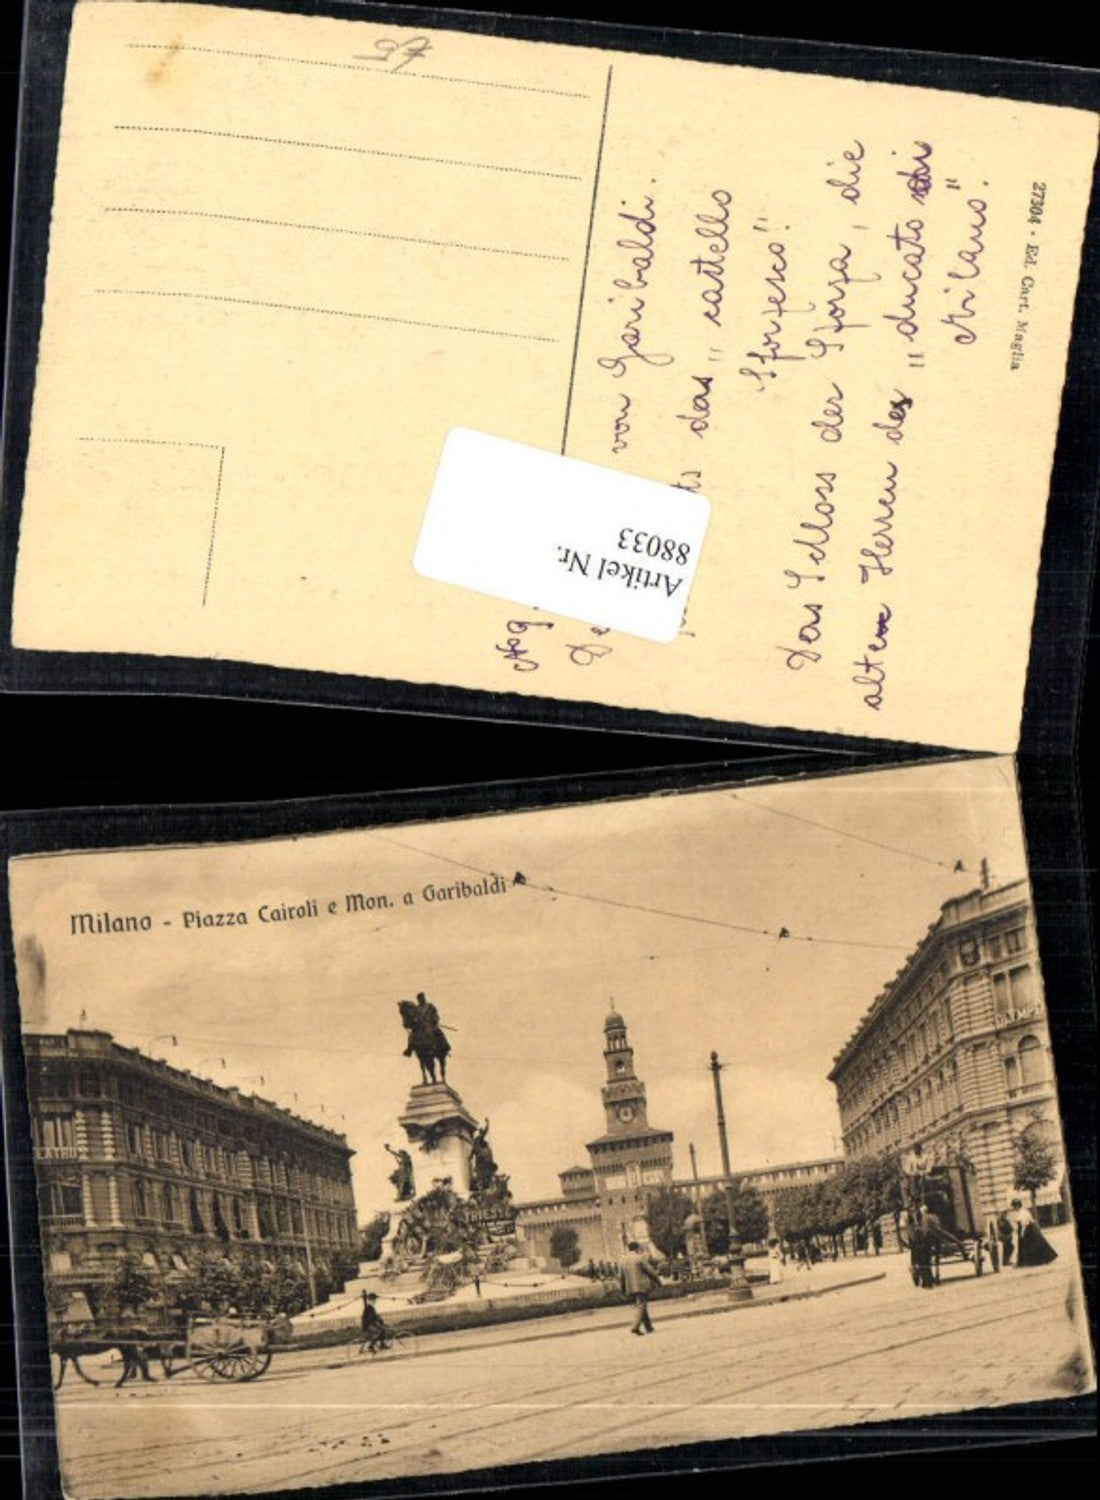 27304 - Ed. Cart. Maglia
No 9.
De von Garibaldi.
ts das „castello
Sforzesco"!
Das Schloss der Sforza, die
alten Herren des „ducato di
Milano".
Artikel Nr.
88033
Milano - Piazza Cairoli e Mon. a Garibaldi
OLYMPIA